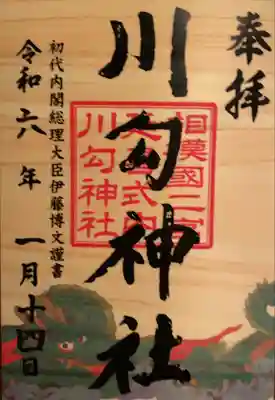 奉拝
川勾神社
相模國二宮
式内
川勾神社
初代内閣総理大臣伊藤博文謹書
令和六年 一月十四日